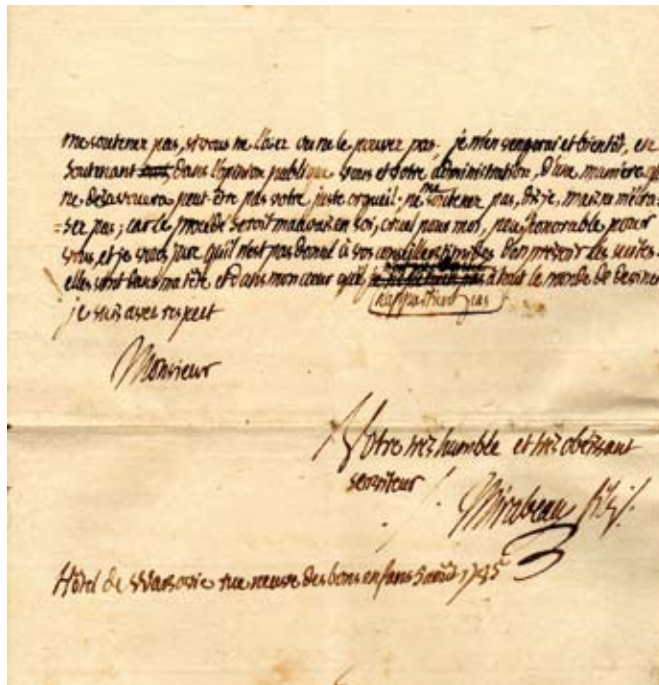 me soutenez pas, si vous ne l'osez ou ne le pouvez pas. je m'en vengerai et bientôt, en
soutenant dans l'opinion publique vous et votre administration, d'une manière que
ne désavouera peut-être pas votre juste orgueil. ne me soutenez pas, dis-je, mais ne m'écra-
=sez pas; car le procédé seroit mauvais en soi, cruel pour moi, peu honorable pour
vous, et je vous jure qu'il n'est pas donné à vos conseillers timides d'en prévoir les suites.
elles sont dans ma tête et dans mon cœur qu'il n'appartient pas à tout le monde de deviner
je suis avec respect
Monsieur
Votre très humble et très obéissant
serviteur
Mirabeau fils.
Hôtel de Varsovie rue neuve des bons enfans 3 août 1785